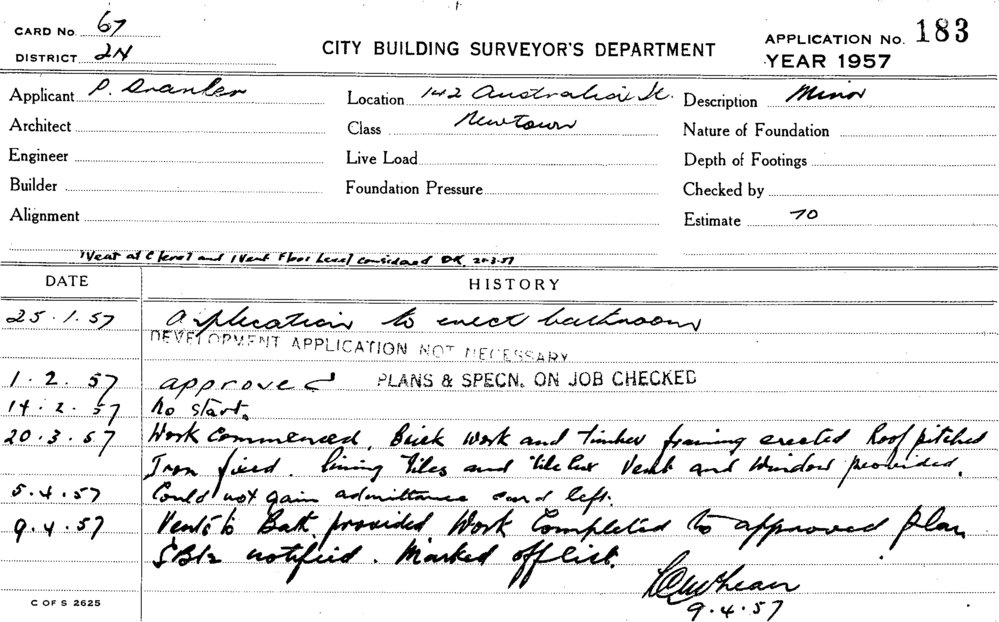 CARD No. 67
DISTRICT 2N
CITY BUILDING SURVEYOR'S DEPARTMENT
APPLICATION No. 183
YEAR 1957
Applicant P. Location 142 Australia St. Description Minor
Architect Class Newtown Nature of Foundation
Engineer Live Load Depth of Footings
Builder Foundation Pressure Checked by
Alignment Estimate 70
1 Vent at C level and 1 Vent Floor Level considered OK. 20-3-57
DATE HISTORY
25.1.57 Application to erect bathroom
DEVELOPMENT APPLICATION NOT NECESSARY
1.2.57 approved PLANS & SPECN. ON JOB CHECKED
14.2.57 No start.
20.3.57 Work Commenced. Brick work and timber framing erected Roof pitched
Iron fixed. lining tiles and Vent and Window provided.
5.4.57 Could not gain admittance card left.
9.4.57 Vents to Bath provided Work Completed to approved plan
notified. Marked off list.
9.4.57
C OF S 2625